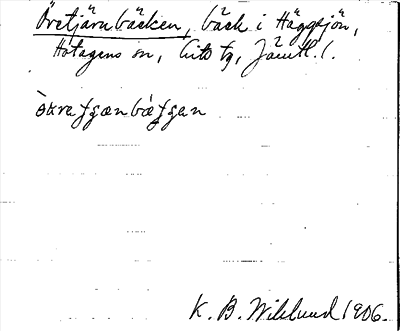 Öretjärnbäcken, bäck i Häggsjön,
Hotagens sn, Lits tg, Jämtl. l.
K. B. Wiklund 1906.